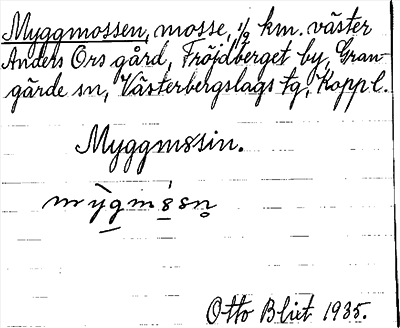 Myggmossen, mosse, 1/2 km. väster
Anders Ors gård, Fröjdberget by, Gran-
gärde sn, Västerbergslags tg, Koppl.
Myggm8sin.
Otto Blixt 1935.